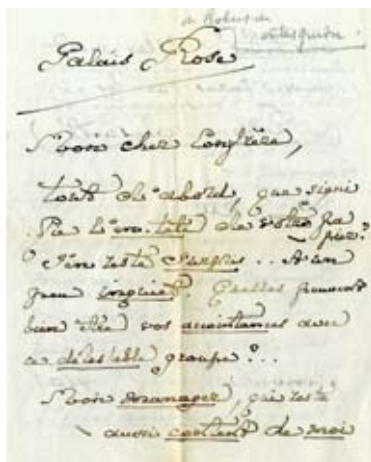 de Robert de
Montesquiou
Palais Rose
Mon cher Confrère,
tout d'abord, que signi
fie l'en-tête de votre pa
pier?
J'en reste surpris.. et un
peu inquiet. Quelles peuvent
bien être vos accointances avec
ce détestable groupe?..
Mon manager, qui reste
aussi content de moi